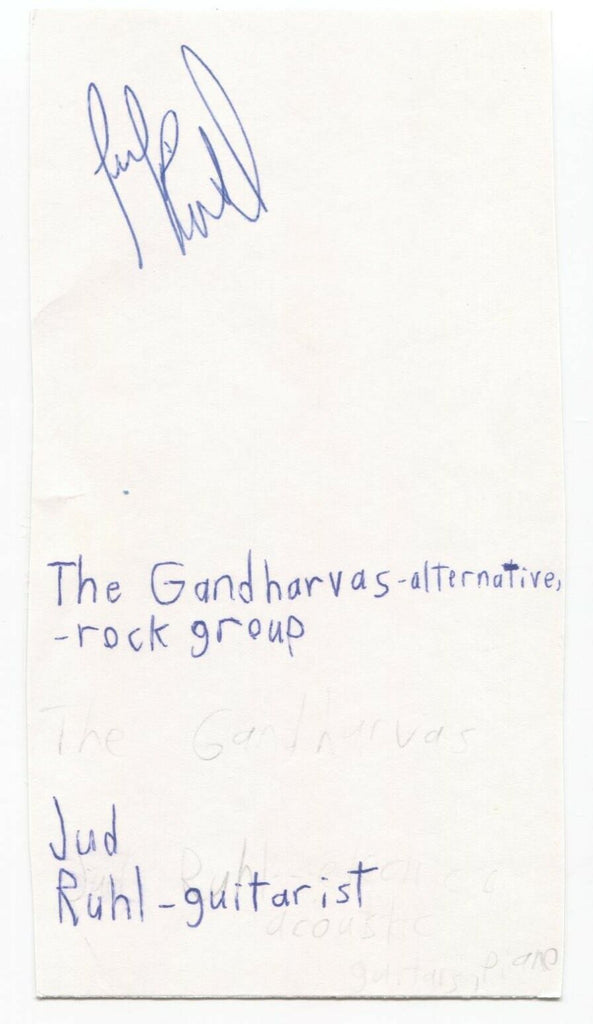 Jud Ruhl
The Gandharvas-alternative,
-rock group
The Gandharvas
Jud
Ruhl-guitarist
Ruhl-
acoustic
guitars, piano